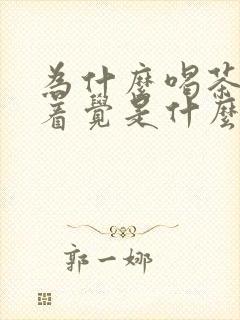 為什麼喝茶
著覺是什麼
郭一娜